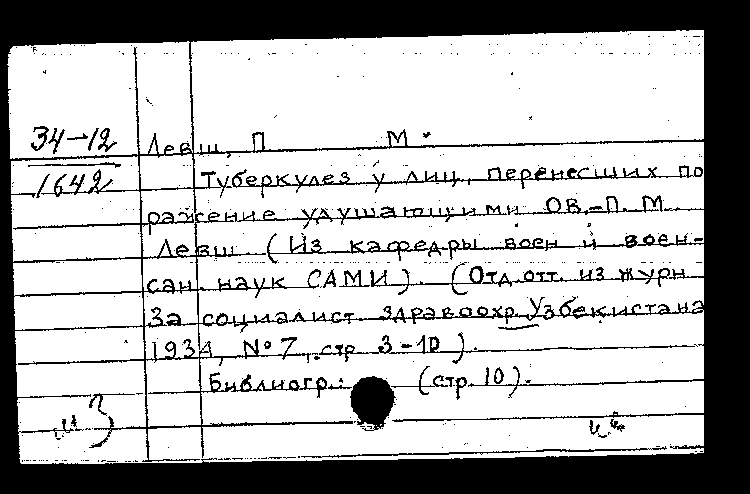 34-12
1642
Левш, П М.
Туберкулез у лиц, перенесших по
ражение удушающими ОВ.-П. М.
Левш (Из кафедры воен и воен-
сан. наук САМИ). (Отд. отт. из журн
За социалист. здравоохр Узбекистана
1934, № 7, стр 3-10).
Библиогр.: (стр. 10).